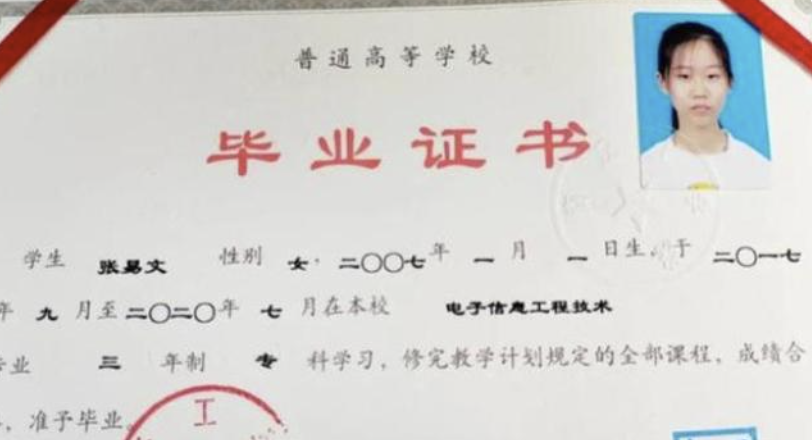 普通高等学校
毕业证书
学生 张易文 性别 女，二〇〇七年 一 月 一 日生，于 二〇一七
年 九 月至二〇二〇年 七 月在本校 电子信息工程技术
专业 三 年制 专 科学习，修完教学计划规定的全部课程，成绩合
，准予毕业。
工